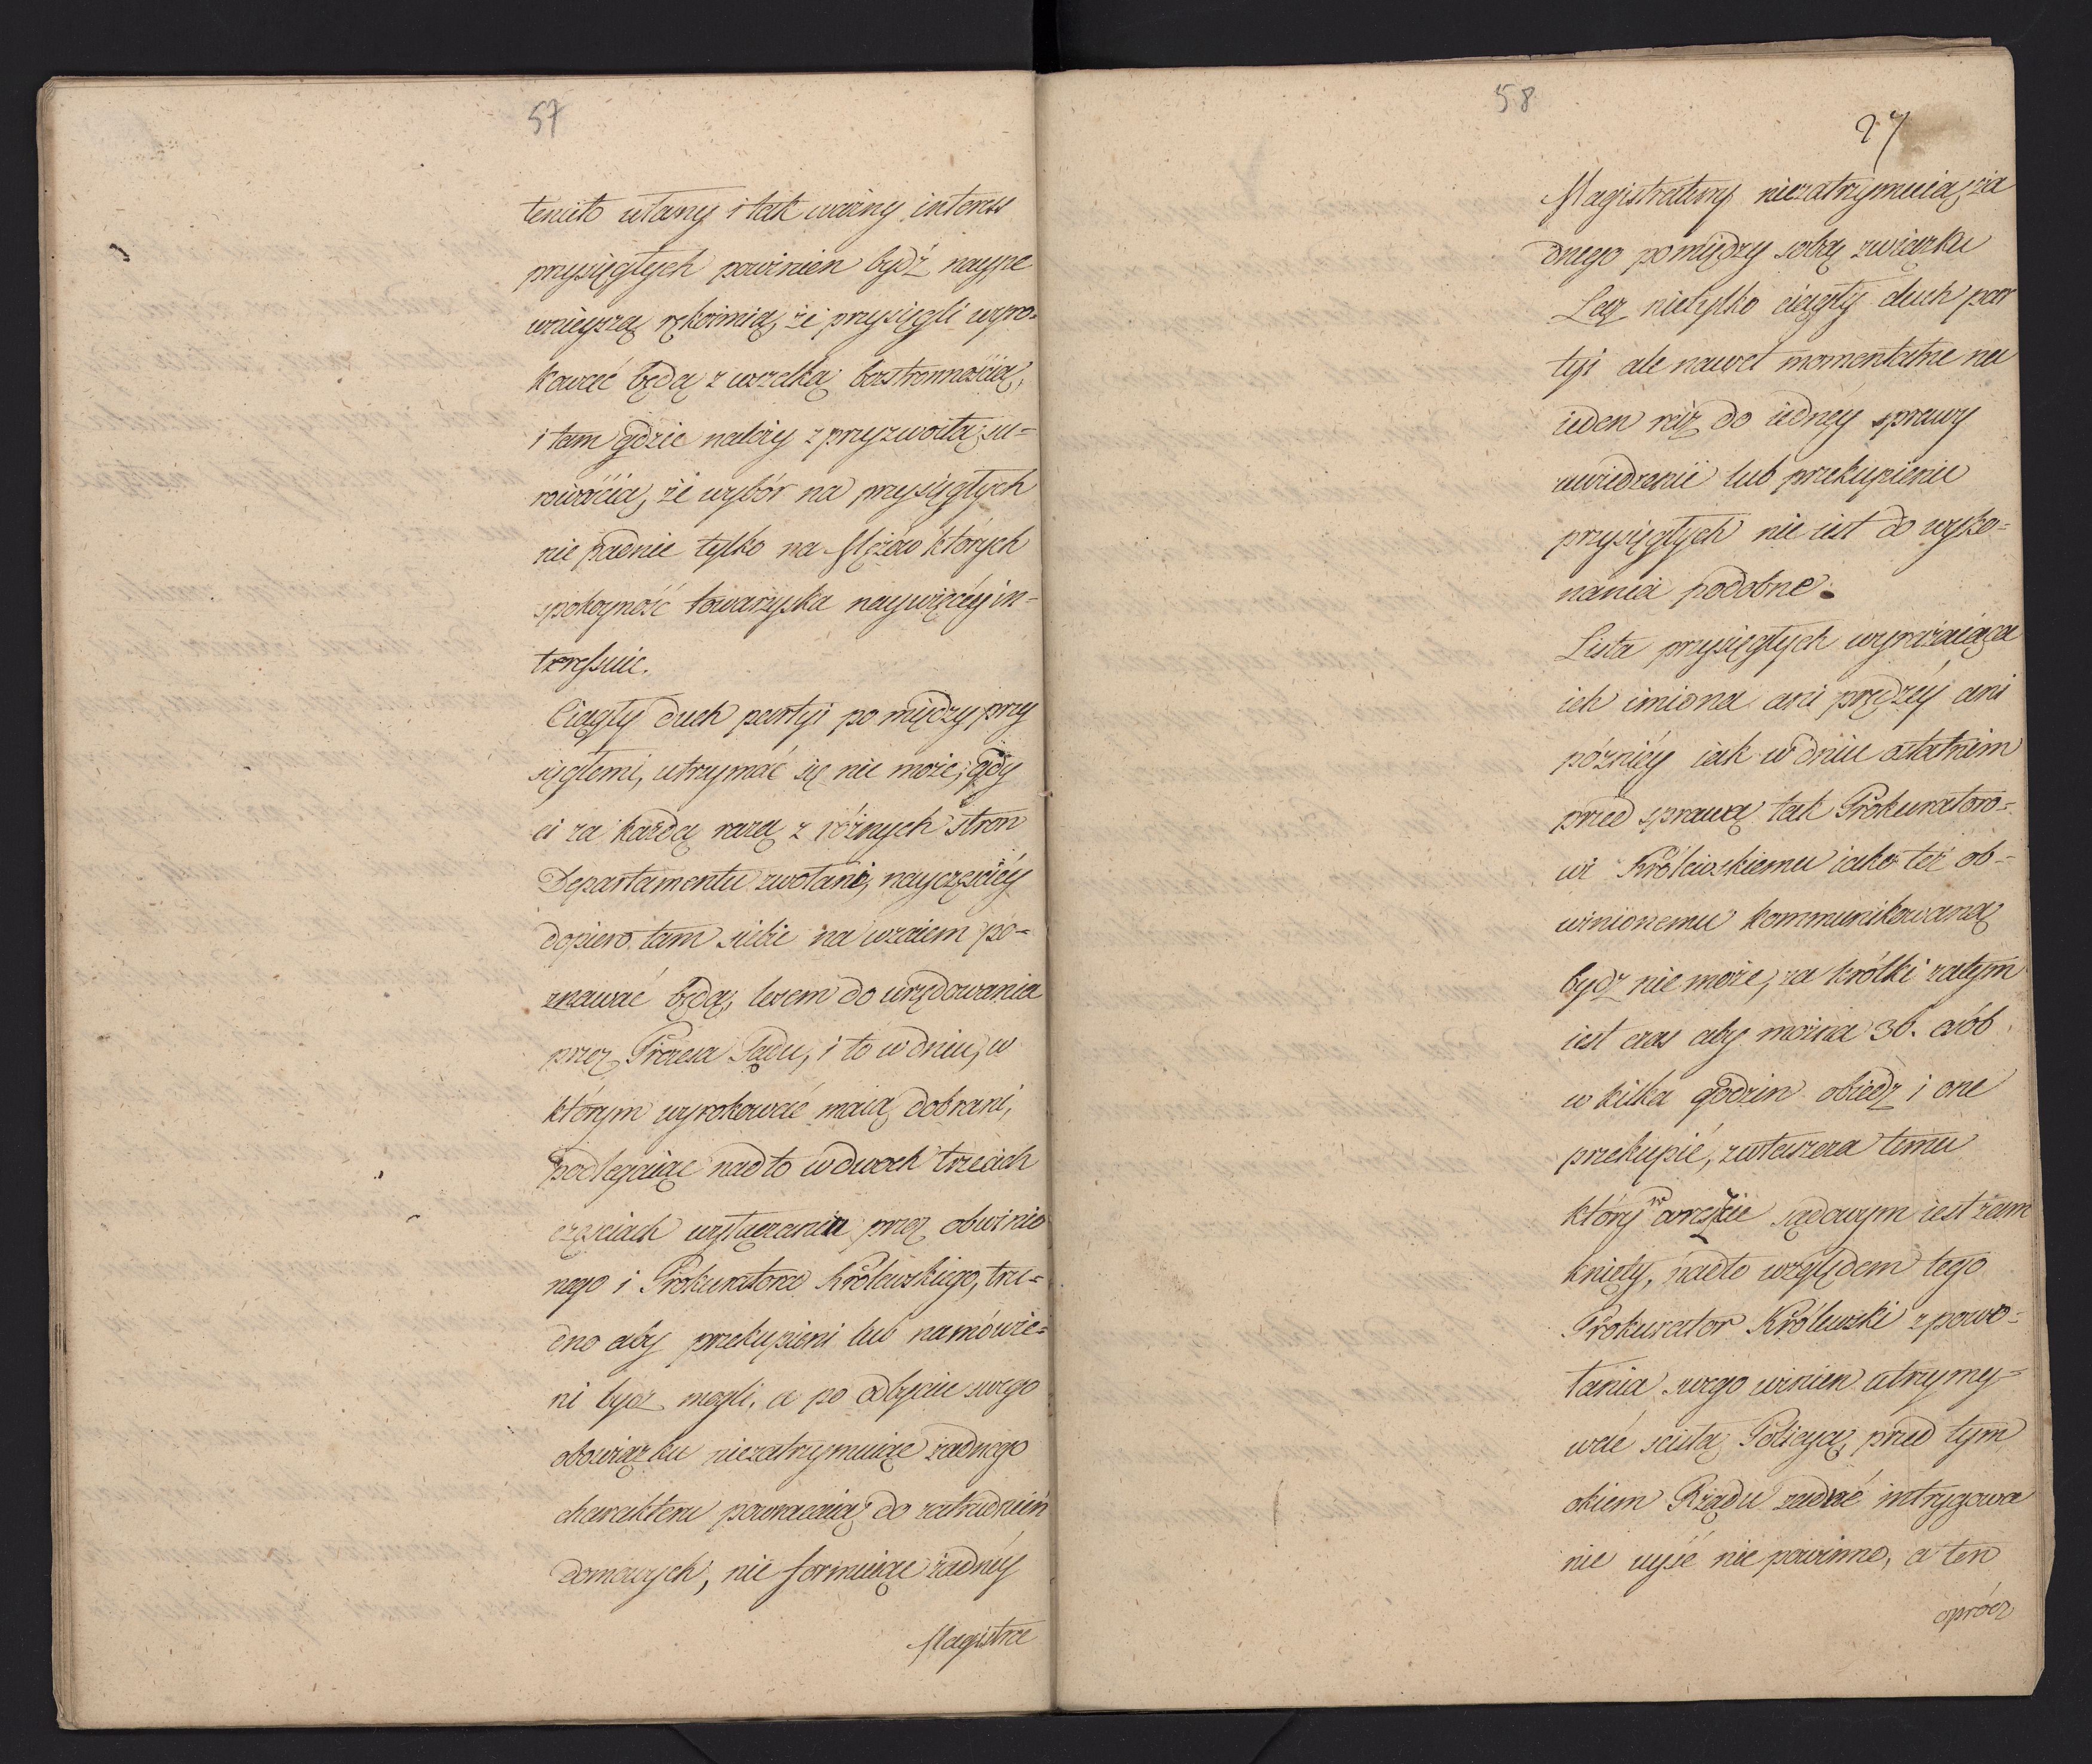 57
temito własny i tak ważny interess
przysięgłych powinien bydź naype
wnieyszą rękoimią, że przysięgli wyro=
kować będą z wszelką bezstronnością,
i tam gdzie należy z przyzwoitą su=
rowością, że wybór na przysięgłych
nie padnie tylko na Mężów których
spokoyność towarzyska naywięcéy in=
teressuie.
Ciągły duch partyi pomiędzy przy
sięgłemi, utrzymać się nie może, gdy
ci za każdą razą z różnych stron
Departamentu zwołani, nayczęściéy
dopiero tam siebie na wzaiem po=
znawać będą, losem do urzędowania
przez Prezesa Sądu, i to w dniu, w
którym wyrokować maią dobrani,
podlegaiąc nadto w dwoch trzecich
częściach wyłączeniu przez obwinio
nego i Prokuratora Królewskiego, tru=
dno aby przekupieni lub namówie=
ni bydź mogli, a po odbyciu swego
obowiązku niezatrzymuiąc żadnego
charakteru powracaią do zatrudnień
domowych, nie formuiąc żadnéy
Magistra
58
27
Magistratury niezatrzymuią, ża
dnego pomiędzy sobą związku
Lecz nietylko ciągły duch par
tyi ale nawet momentalne na
ieden raz do iednéy sprawy
uwiedzenie lub przekupienie
przysięgłych nie iest do wyko=
nania podobne.
Lista przysięgłych wyrażaiąca
ich imiona ani prędzéy ani
późniéy iak w dniu ostatnim
przed sprawą tak Prokuratoro=
wi Królewskiemu iako też ob=
winionemu kommunikowaną
bydź nie może, za krótki zatym
iest czas aby można 36. osób
w kilka godzin obiedz i one
przekupić, zwłaszcza temu
który w areszcie sądowym iest zam
knięty, nadto względem tego
Prokurator Królewski z powo=
łania swego winien utrzymy=
wać ścisłą Policyą, przed tym
okiem Rządu żadne intrygowa
nie uyść nie powinno, a ten
oprócz